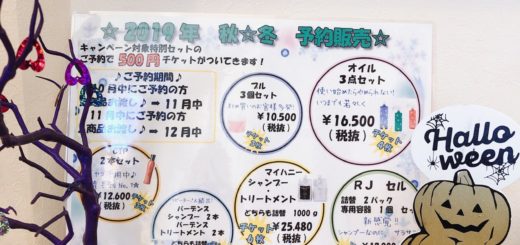 ☆2019年 秋☆冬 予約販売☆
キャンペーン対象特別セットの
ご予約で500円チケットがついてきます！
♪ご予約期間♪
月中にご予約の方
お渡し♪ ➡ 11月中
11月中にご予約の方
商品お渡し♪ ➡ 12月中
フル
3個セット
¥10.500
(税抜)
オイル
3点セット
使い始めたらやめられない！
いつまでも若々しく
¥16.500
(税抜)
チケット
2本セット
¥12.600
(税抜)
チケット
バーデンス
シャンプー 2本
バーデンス
トリートメント 2本
どちらも詰替
マイハニー
シャンプー
トリートメント
どちらも詰替 1000g
¥25.480
(税抜)
チケット
RJ セル
詰替 2パック
専用容器 1個 セ
Hallo
ween